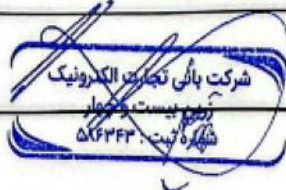 شرکت بانی تجارت الکترونیک
زرین بیست و چهار
شماره ثبت : ۵۸۶۳۶۳